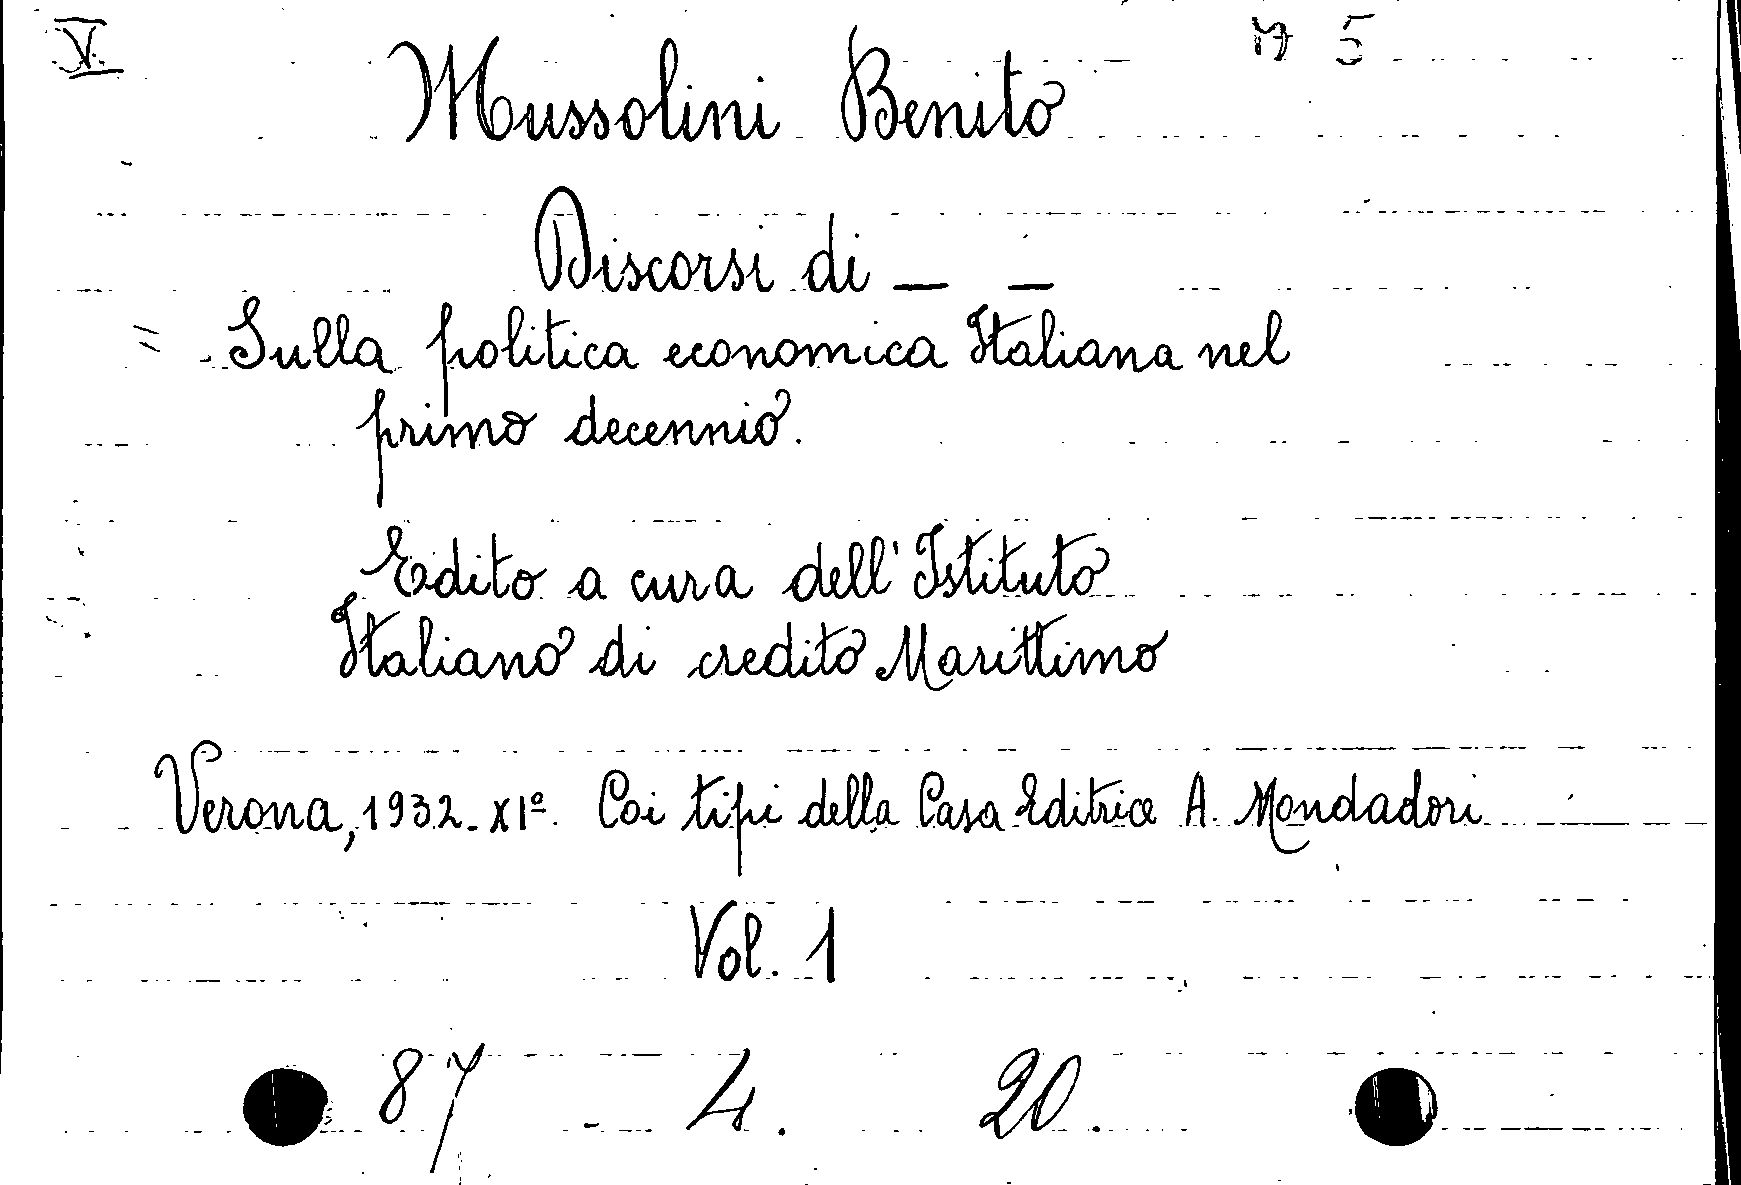 V.
Mussolini Benito
Discorsi di _ _
= Sulla politica economica Italiana nel
primo decennio.
Edito a cura dell'Istituto
Italiano di credito Marittimo
Verona, 1932 - XIº. Coi tipi della Casa Editrice A. Mondadori
Vol. 1
87 - 4. 20.